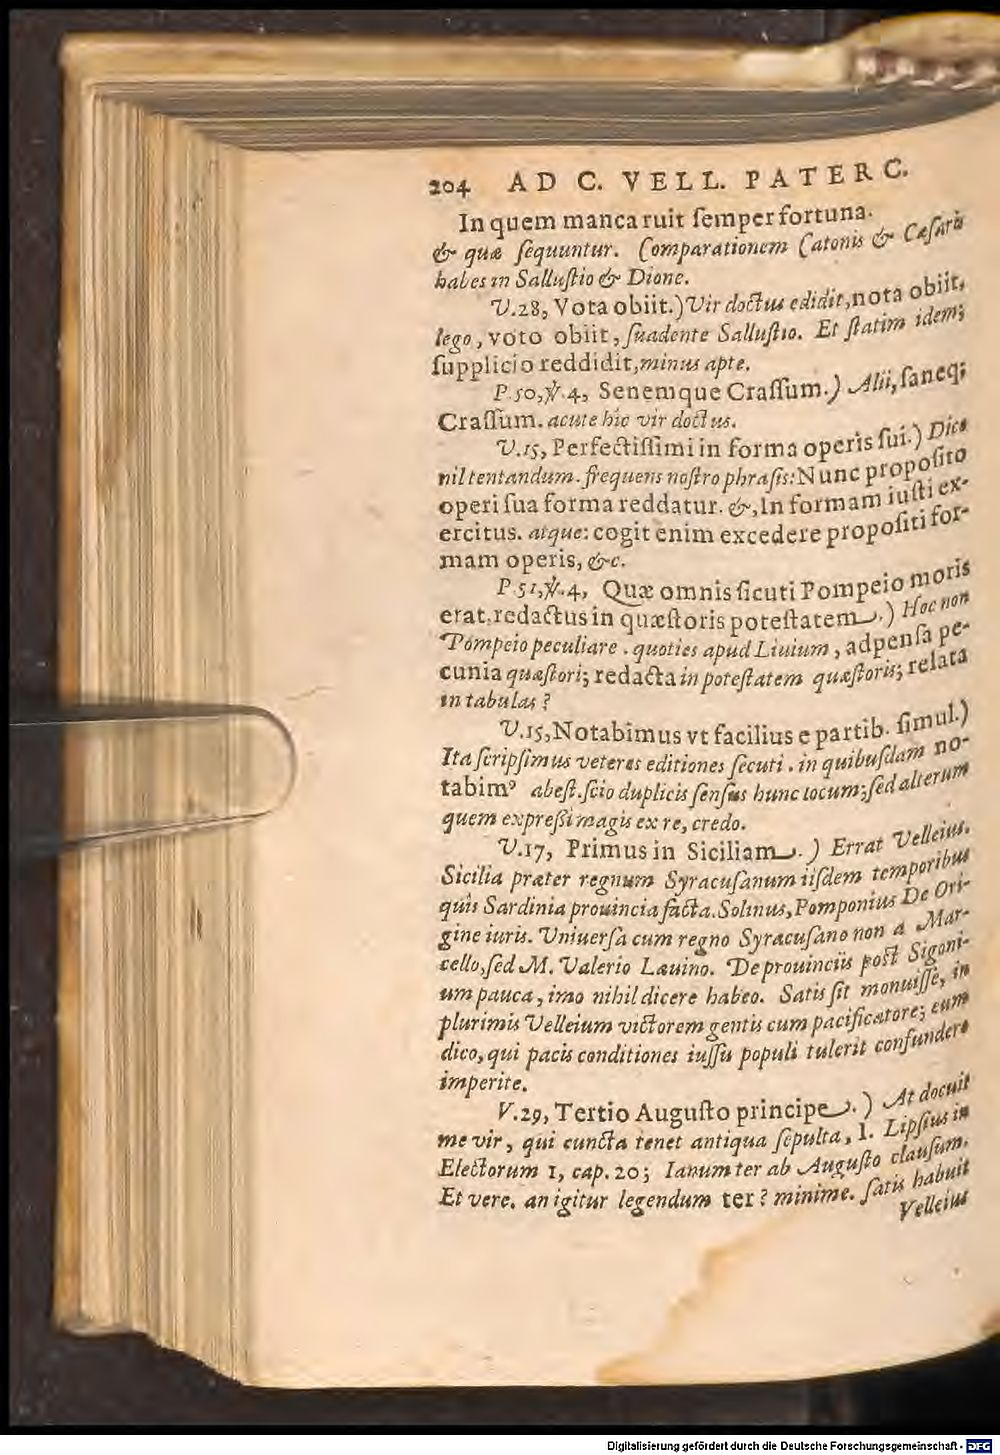 204 AD C. VELL. PATERC.
In quem manca ruit ſemper fortuna.
& quæ ſequuntur. Comparationem Catonis & Cæſaris
habes in Salluſtio & Dione.
V.28, Vota obiit.) Vir doctus edidit, nota obiit,
lego, voto obiit, ſuadente Salluſtio. Et ſtatim idem;
ſupplicio reddidit, minus apte.
P.50,℣.4, Senemque Craſſum.) Alii, ſaneq;
Craſſum. acute hic vir doctus.
V.15, Perfectiſſimi in forma operis ſui.) Dico
nil tentandum. frequens noſtro phraſis: Nunc propoſito
operi ſua forma reddatur. &, In formam iuſti ex-
ercitus. atque: cogit enim excedere propoſiti for-
mam operis, &c.
P.51,℣.4, Quæ omnis ſicuti Pompeio moris
erat, redactus in quæſtoris poteſtatem.) Hoc non
Pompeio peculiare. quoties apud Liuium, adpenſa pe-
cunia quæſtori; redacta in poteſtatem quæſtoris; relata
in tabulas?
V.15, Notabimus vt facilius e partib. ſimul.)
Ita ſcripſimus veteres editiones ſecuti. in quibuſdam no-
tabimꝰ abeſt. ſcio duplicis ſenſus hunc locum; ſed alterum
quem expreſſi magis ex re, credo.
V.17, Primus in Siciliam.) Errat Velleius.
Sicilia præter regnum Syracuſanum iiſdem temporibus
quis Sardinia prouincia facta. Solinus, Pomponius De Ori-
gine iuris. Vniuerſa cum regno Syracuſano non a Mar-
cello, ſed M. Valerio Lauino. De prouinciis poſt Sigoni-
um pauca, imo nihil dicere habeo. Satis ſit monuiſſe, in
plurimis Velleium victorem gentis cum pacificatore; eum
dico, qui pacis conditiones iuſſu populi tulerit confundere
imperite.
V.29, Tertio Auguſto principe.) At docuit
me vir, qui cuncta tenet antiqua ſepulta, I. Lipſius in
Electorum 1, cap. 20; Ianum ter ab Auguſto clauſum.
Et vere. an igitur legendum ter? minime. ſatis habuit
Velleius
Digitalisierung gefördert durch die Deutsche Forschungsgemeinschaft - DFG